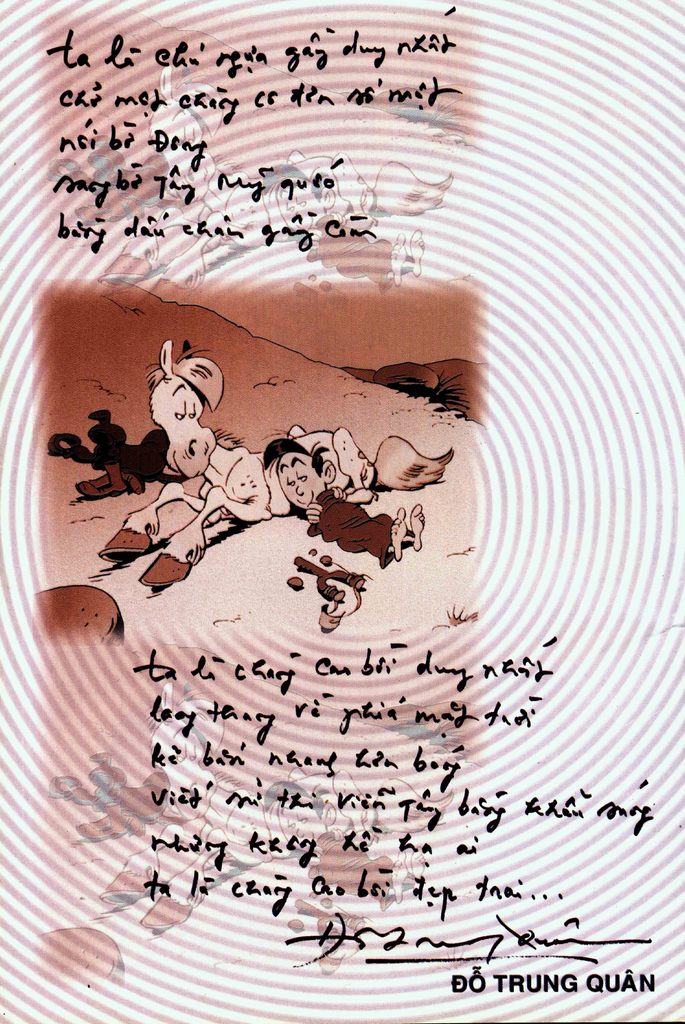 ta là chú ngựa gầy duy nhất
chở một chàng có tên số một
nối bờ Đông
sang bờ Tây Mỹ quốc
bằng dấu chân gầy còm
ta là chàng cao bồi duy nhất
lang thang về phía mặt trời
kẻ bắn nhanh hơn bóng
viết sử thi viễn Tây bằng khẩu súng
nhưng không hề hạ ai
ta là chàng cao bồi đẹp trai...
Đỗ Trung Quân
ĐỖ TRUNG QUÂN